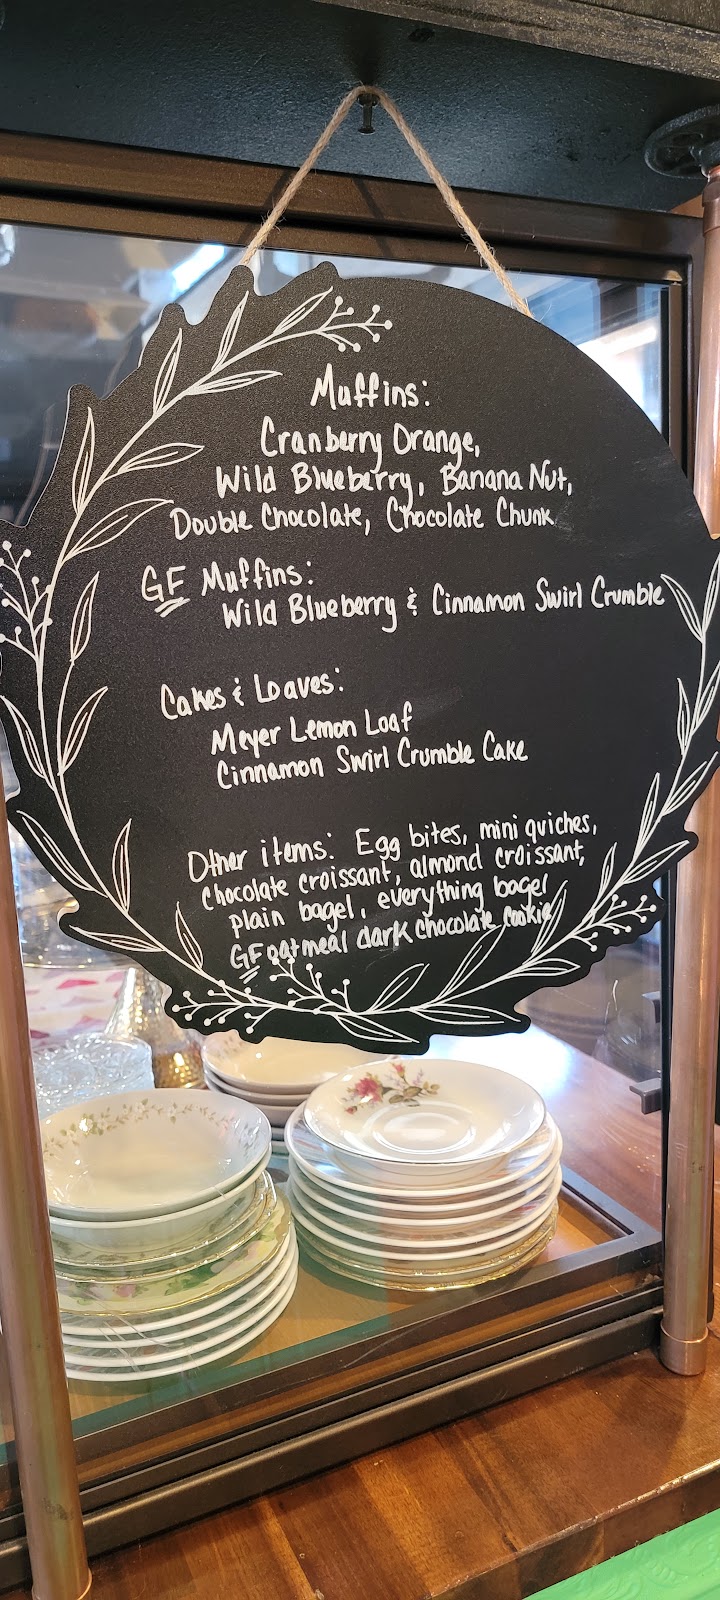 Muffins:
Cranberry Orange,
Wild Blueberry, Banana Nut,
Double Chocolate, Chocolate Chunk
GF Muffins:
Wild Blueberry & Cinnamon Swirl Crumble
Cakes & Loaves:
Meyer Lemon Loaf
Cinnamon Swirl Crumble Cake
Other items: Egg bites, mini quiches,
chocolate croissant, almond croissant,
plain bagel, everything bagel
GF oatmeal dark chocolate cookie